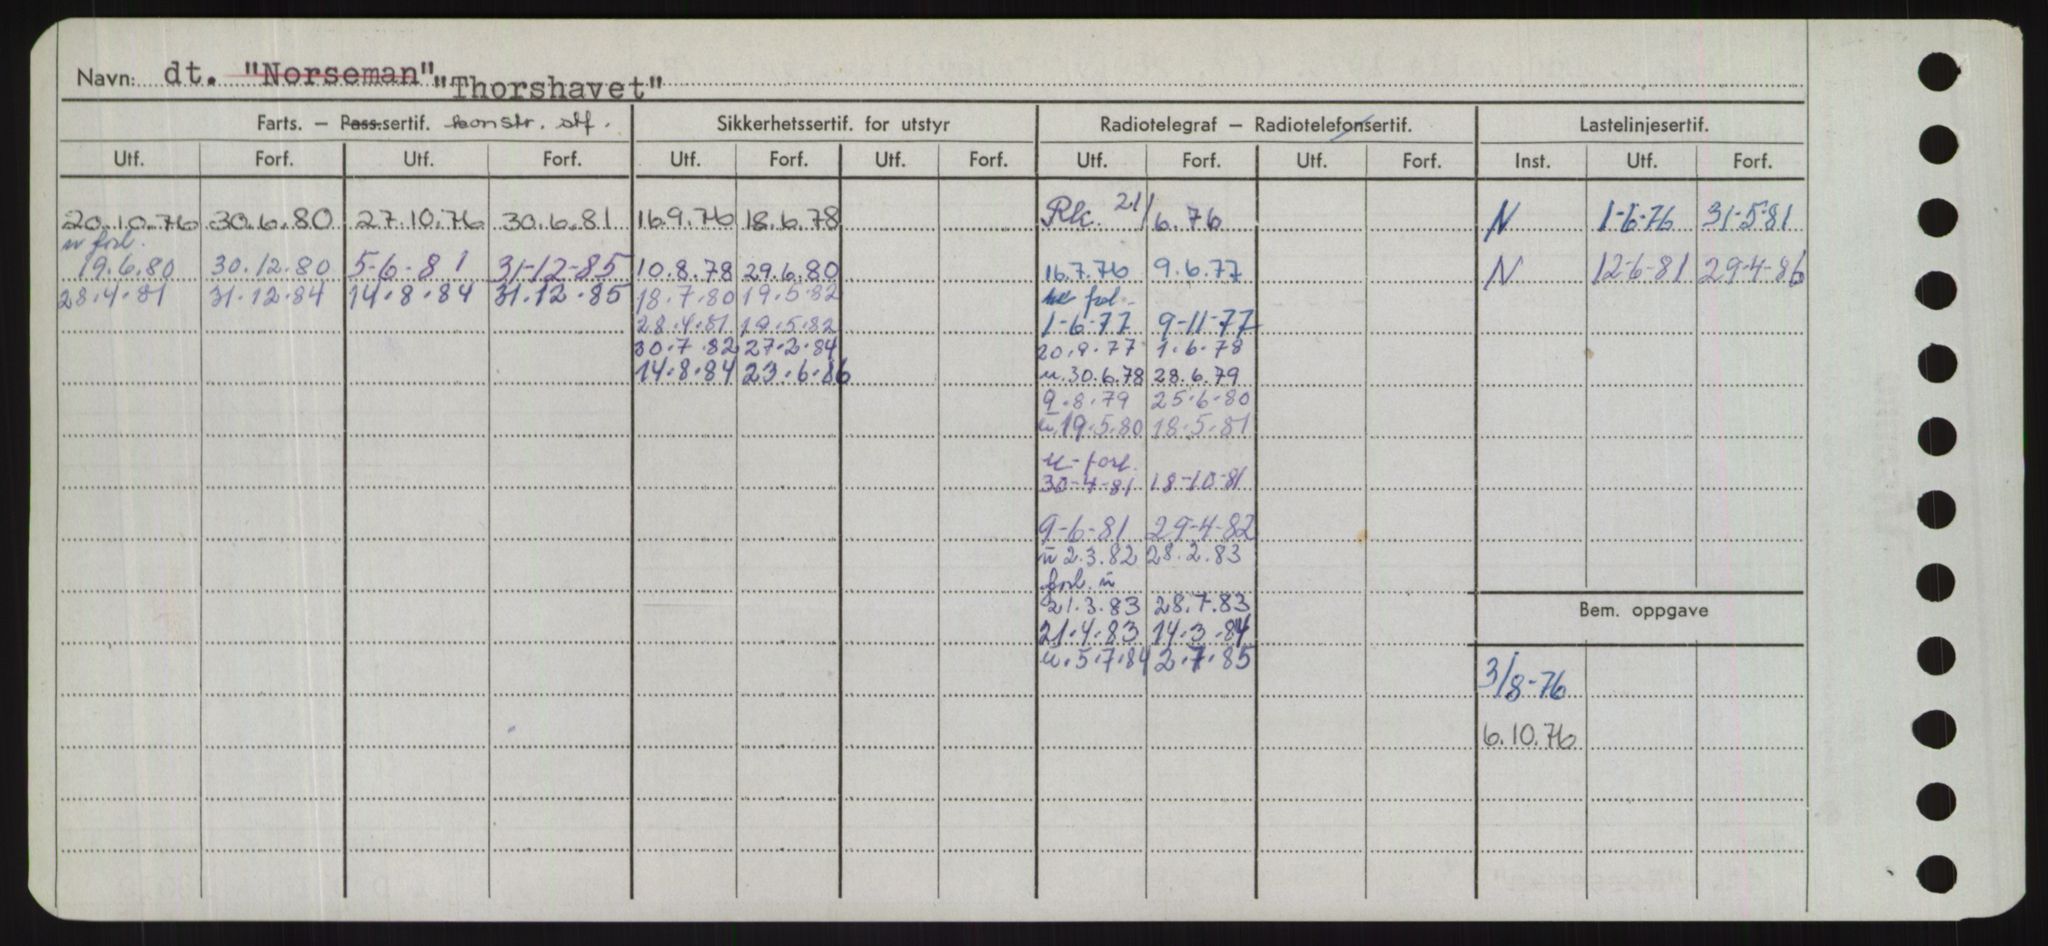 Navn: dt. "Norseman" "Thorshavet"
Farts. — Pass.sertif. konstr. stf. Sikkerhetssertif. for utstyr Radiotelegraf — Radiotelefonsertif. Lastelinjesertif.
Utf. Forf. Utf. Forf. Utf. Forf. Utf. Forf. Utf. Forf. Utf. Forf. Inst. Utf. Forf.
20.10.76 30.6.80 27.10.76 30.6.81 16.9.76 18.6.78 Rk. 21/6.76 N 1-6-76 31-5-81
u forl.
19.6.80 30.12.80 5-6-81 31-12-85 10.8.78 29.6.80 16.7.76 9.6.77 N 12-6-81 29-4-86
28.4.81 31.12.84 14.8.84 31.12.85 18.7.80 19.5.82 forl.
28.4.81 19.5.82 1-6-77 9-11-77
30.7.82 27.2.84 20.9.77 1.6.78
14.8.84 23.6.86 u.30.6.78 28.6.79
9.8.79 25.6.80
u.19.5.80 18.5.81
u- forl.
30-4-81 18-10-81
9-6-81 29-4-82
u 2.3.82 28.2.83
forl. u
21.3.83 28.7.83
Bem. oppgave
21.4.83 14.3.84
u.5.7.84 2.7.85
3/8-76
6.10.76